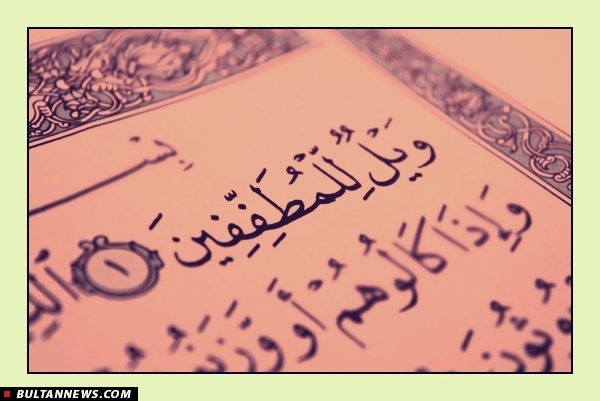 بِسْـ
وَيْلٌ لِّلْمُطَفِّفِينَ ١
وَإِذَا كَالُوهُمْ أَو وَّزَنُوهُمْ
BULTANNEWS.COM